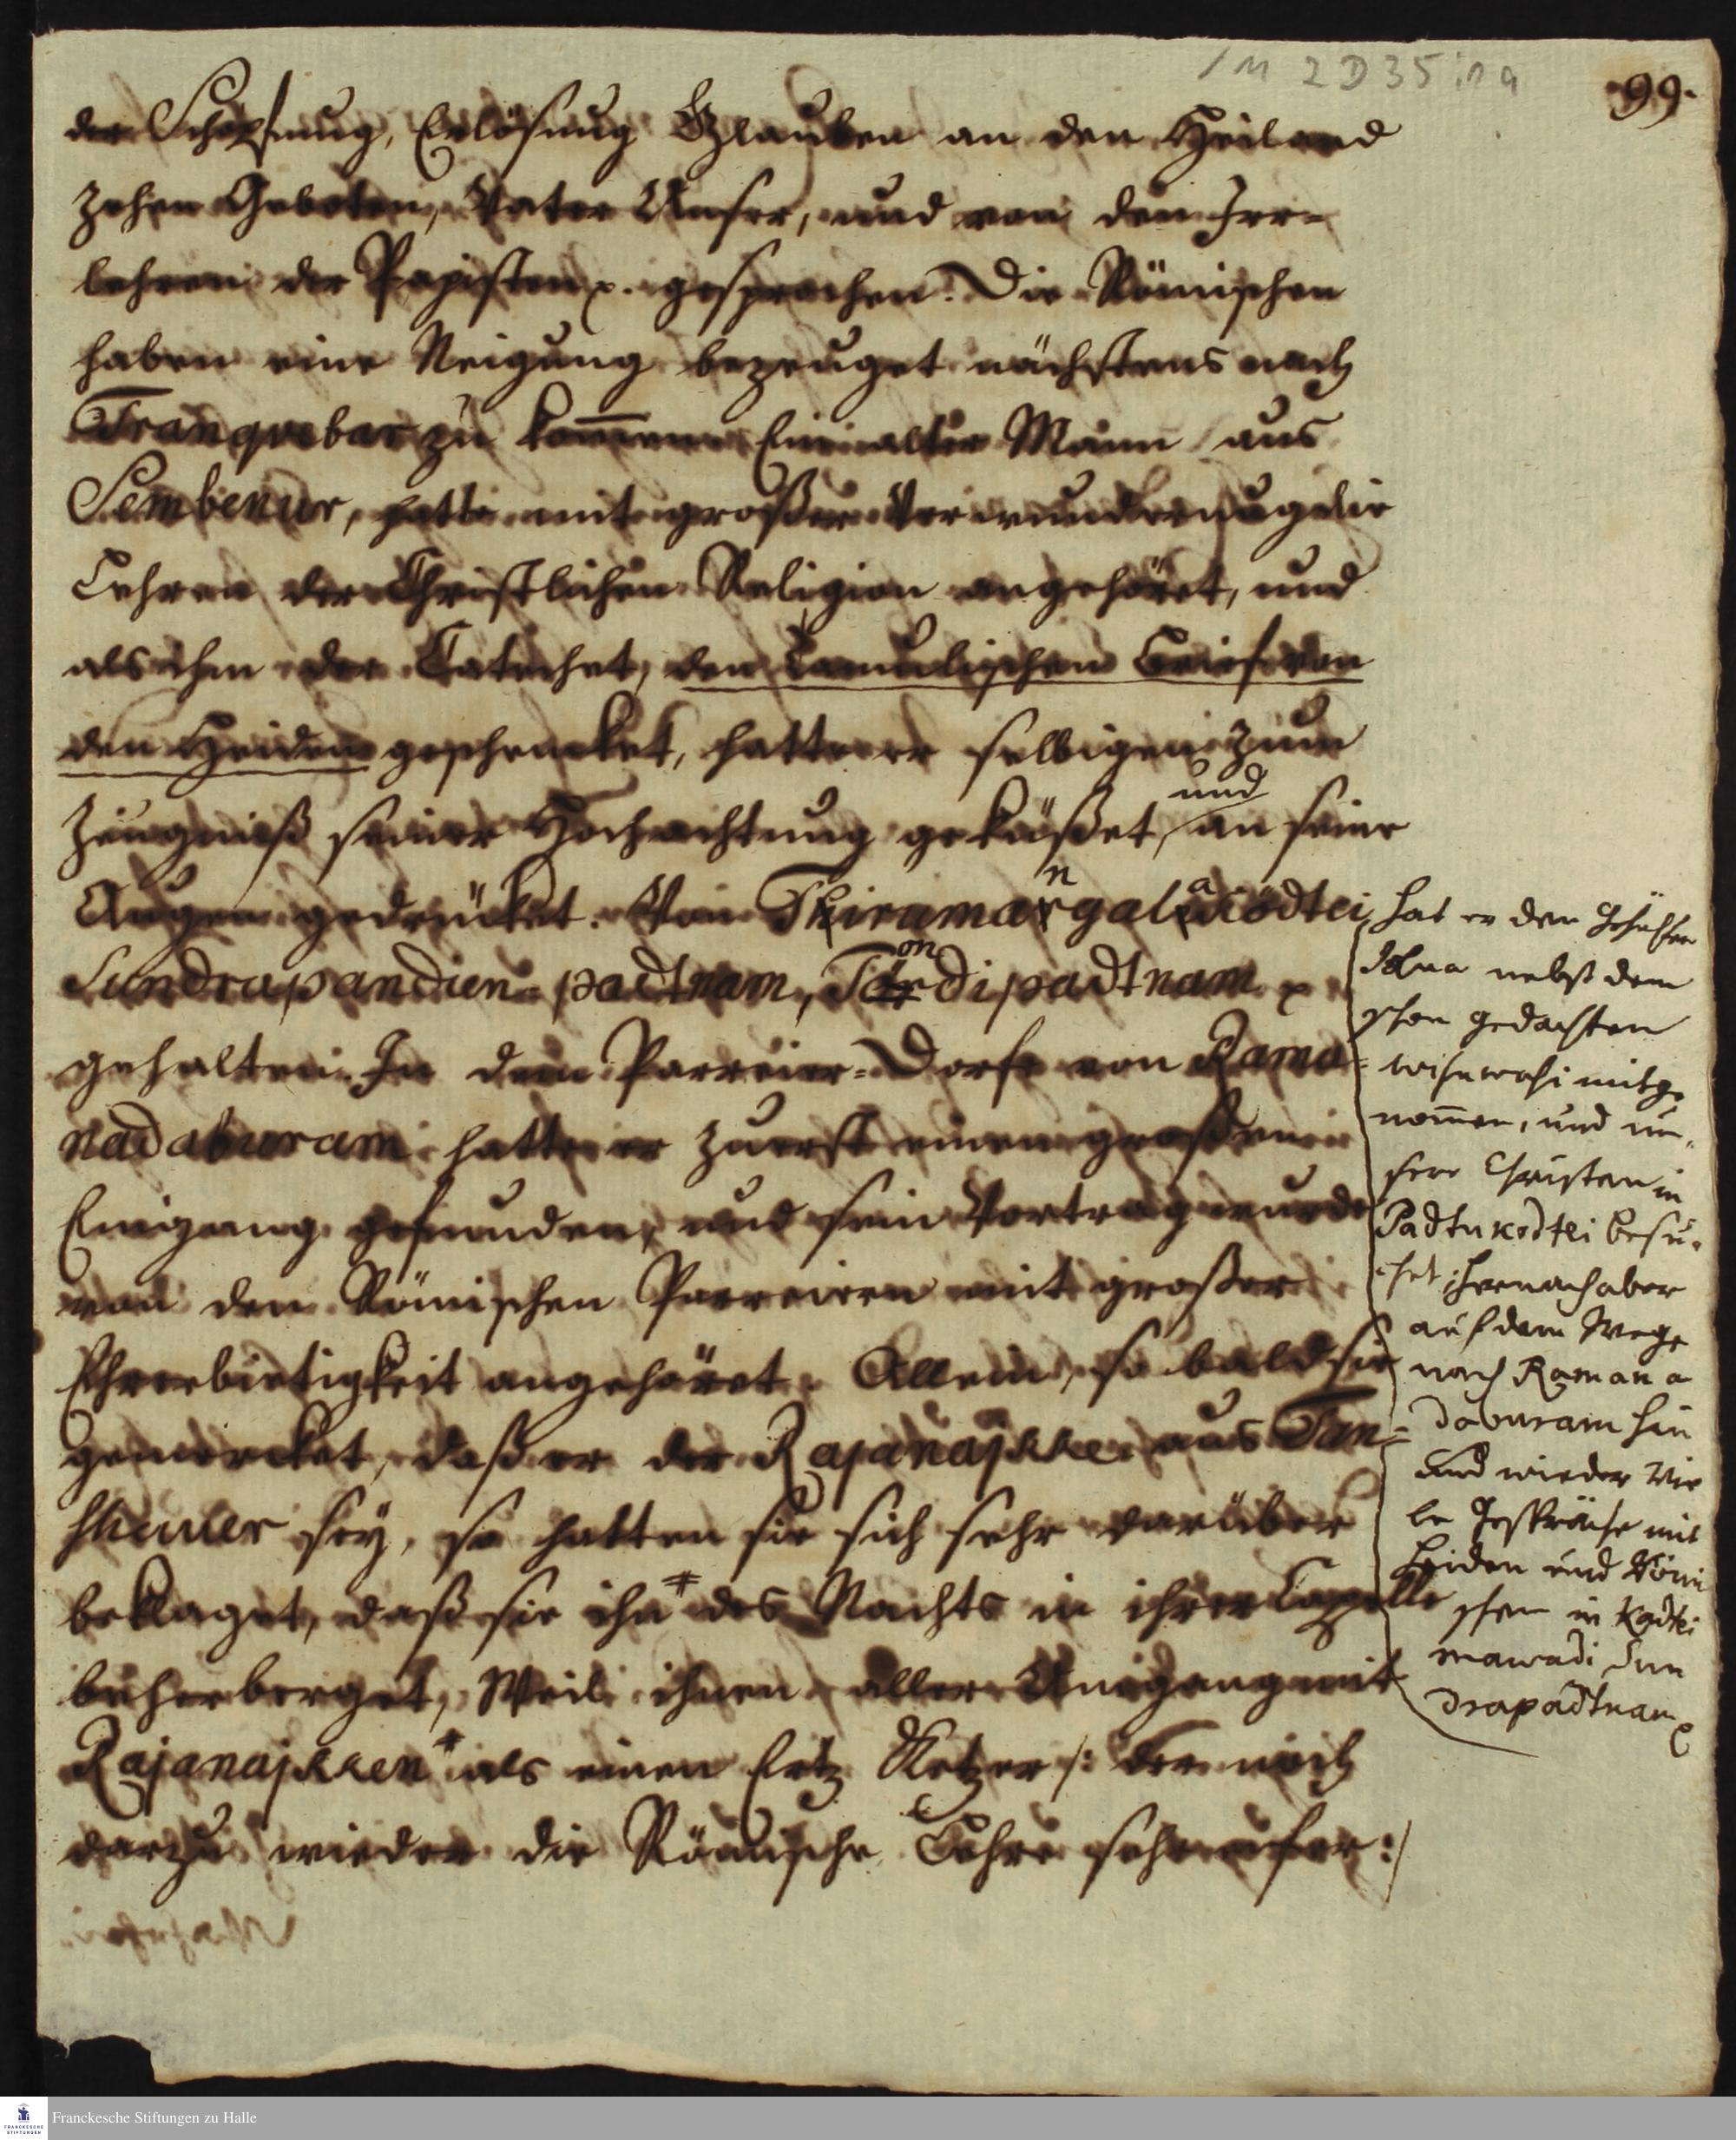 /M 2 D 35 : 1 a
99.
der Schöpfung, Erlösung Glauben an den Heiland
zehen Geboten, Vater Unser, und von den Irr-
lehren der Papisten p. gesprochen. Die Römischen
haben eine Neigung bezeuget nächstens nach
Tranqvebar zu kom̅en. Ein alter Mann aus
Sembenur, hatte mit großer Verwunderung die
Lehren der Christlichen Religion angehöret, und
als ihm der Catechet, den Tamulischen Brief von
den Heiden geschencket, hatte er selbigen zum
Zeugniß seiner Hochachtung geküßet, und an seine
Augen gedrücket. Von Thiramangalaködtei
Sundrapandien-padtnam, Tondipadtnam p
gehalten. In dem Parreier-Dorfe von Rama-
nadaburam hatte er zuerst einen großen
Eingang gefunden, und sein Vortrag wurde
von den Römischen Parreiern mit großer
Ehrerbietigkeit angehöret. Allein, so bald sie
gemercket, daß er der Rajanajkken aus Tan-
shauer sey, so hatten sie sich sehr darüber
beklaget, daß sie ihn * des Nachts in ihrer Capelle
beherberget, Weil ihnen aller Umgang mit
Rajanajkken * als einen Ertz Ketzer /: der noch
darzu wieder die Römische Lehre schreibe :/
hat er den Gehülfen
nebst dem
schon gedachten
mitge-
nom̅en, und un-
sere Christen in
Padtukodtei besu-
chet; hernach aber
auf dem Wege
nach Ramana
daburam hin
und wieder vie
le Gespräche mit
Heiden und Römi
schen in Kadtei
mawadi Sun
drapadtnam p
Franckesche Stiftungen zu Halle
FRANCKESCHE
STIFTUNGEN